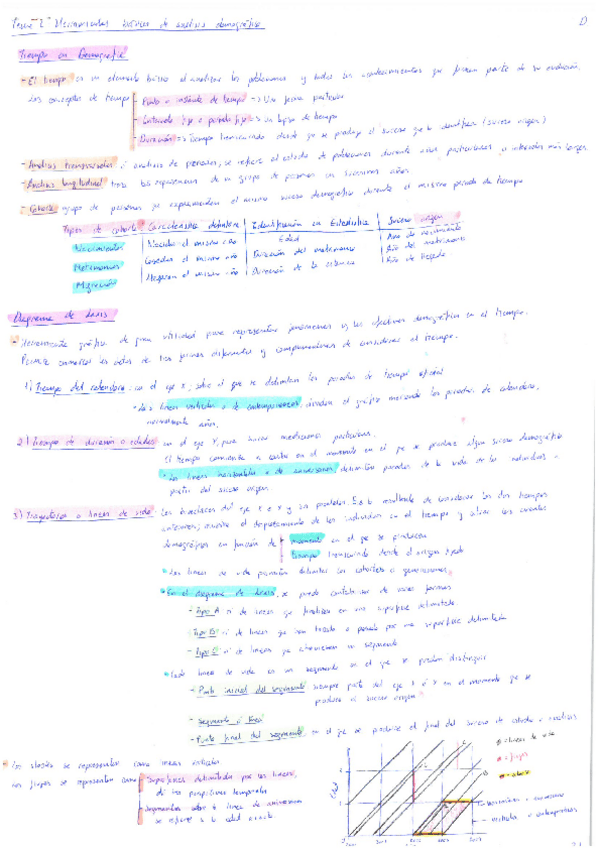 Tema 2 Herramientas básicas de análisis demográfico
Tiempo en Demografía
- El tiempo es un elemento básico al analizar las poblaciones y todos los acontecimientos que forman parte de su evolución.
Los conceptos de tiempo
- Punto o instante de tiempo => Una fecha particular
- Intervalo fijo o periodo fijo => un lapso de tiempo
- Duración => Tiempo transcurrido desde que se produjo el suceso que lo identifica (suceso origen)
- Análisis transversales o análisis de periodos, se refiere al estudio de poblaciones durante años particulares o intervalos más largos
- Análisis longitudinal las de un grupo de personas en sucesivos años.
- Cohorte grupo de personas que experimentan el mismo suceso demográfico durante el mismo periodo de tiempo
Tipos de cohorte | Característica definitoria | Identificación en Estadística | Suceso origen
Nacimientos | Nacidos el mismo año | Edad | Año de nacimiento
Matrimonios | Casados el mismo año | Duración del matrimonio | Año del matrimonio
Migración | Llegaron el mismo año | Duración de la estancia | Año de llegada
Diagrama de Lexis
- Herramienta gráfica de gran utilidad para representar fenómenos y los efectivos demográficos en el tiempo.
Permite los datos de tres formas diferentes y complementarias de considerar el tiempo.
1) Tiempo del calendario: en el eje x, sobre el que se delimitan los periodos de tiempo
* Las líneas verticales o de contemporáneos, dividen el gráfico marcando los periodos de calendario,
normalmente años.
2) Tiempo de duración o edades: en el eje Y, para hacer mediciones particulares.
El tiempo comienza a contar en el momento en el que se produce algún suceso demográfico
* Las líneas horizontales o de aniversarios delimitan periodos de la vida de los individuos a
partir del suceso origen.
3) Trayectorias o líneas de vida: Las bisectrices del eje x e y son paralelas. Es el resultado de considerar los dos tiempos
anteriores; muestra el desplazamiento de los individuos en el tiempo y situar los eventos
demográficos en función de
momento en el que se producen
tiempo transcurrido desde el origen
* Las líneas de vida permiten delimitar las cohortes o generaciones
* En el diagrama de Lexis, se puede contabilizar de varias formas
- Tipo A: nº de líneas que finalizan en una superficie delimitada.
- Tipo B: nº de líneas que han por una superficie delimitada
- Tipo C: nº de líneas que atraviesan un segmento
* Cada línea de vida es un segmento en el que se pueden distinguir
- Punto inicial del segmento: siempre parte del eje X o X en el momento que se
produce el suceso origen.
- Segmento o línea
- Punto final del segmento: en el que se produce el final del suceso de estudio o análisis
* Los stocks se representan como líneas
Los flujos se representan como
- Superficies delimitadas por las líneas
de las perspectivas temporales
- Segmentos sobre la línea de aniversario
se refiere a la edad exacta
líneas de vida
flujos
stocks
Edad